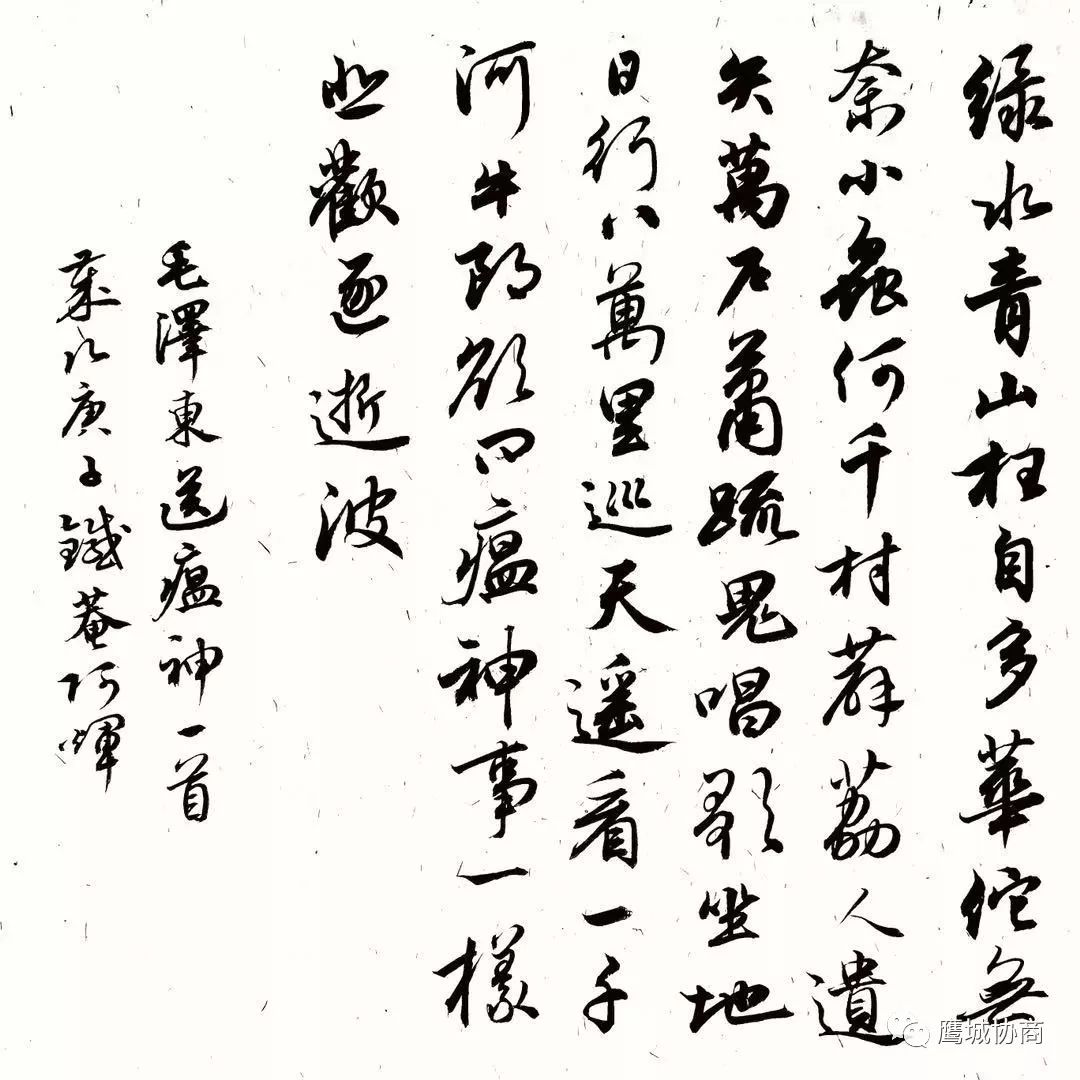 緑水青山枉自多華佗無
奈小蟲何千村薜荔人遺
矢萬戶蕭疏鬼唱歌坐地
日行八萬里巡天遙看一千
河牛郎欲問瘟神事一樣
悲歡逐逝波
毛澤東送瘟神一首
歲次庚子鐵菴阿
鹰城协商